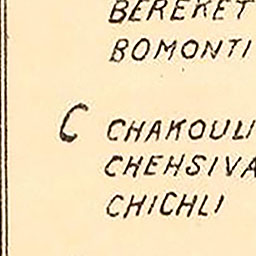 BEREKET
BOMONTI
C CHAKOULI
CHEHSIVA
CHICHLI